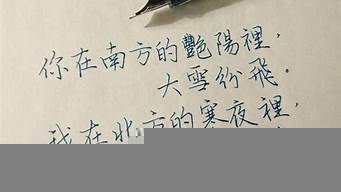 你在南方的艷陽裡，
大雪紛飛．
我在北方的寒夜裡，